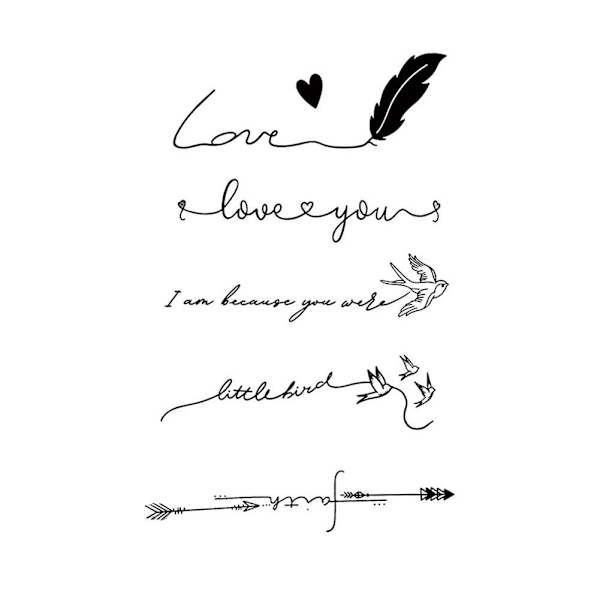 Love
love you
I am because you were
little bird
faith